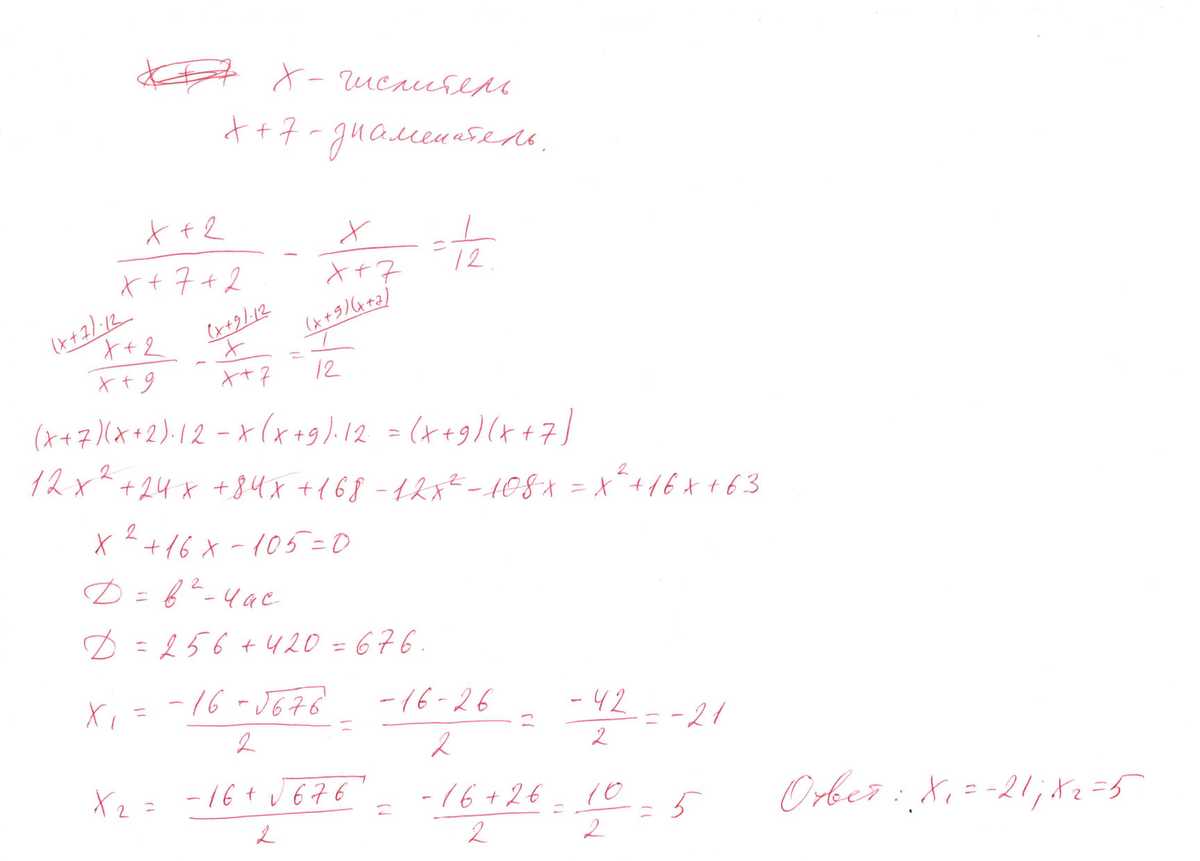 x – числитель
x + 7 – знаменатель.
(x+2)/(x+7+2) – x/(x+7) = 1/12.
(x+7)·12 (x+9)·12 (x+9)(x+7)
(x+2)/(x+9) – x/(x+7) = 1/12
(x+7)(x+2)·12 – x(x+9)·12 = (x+9)(x+7)
12x² + 24x + 84x + 168 – 12x² – 108x = x² + 16x + 63
x² + 16x – 105 = 0
D = b² – 4ac
D = 256 + 420 = 676.
x₁ = (–16 – √676)/2 = (–16 – 26)/2 = –42/2 = –21
x₂ = (–16 + √676)/2 = (–16 + 26)/2 = 10/2 = 5
Ответ: x₁ = –21; x₂ = 5